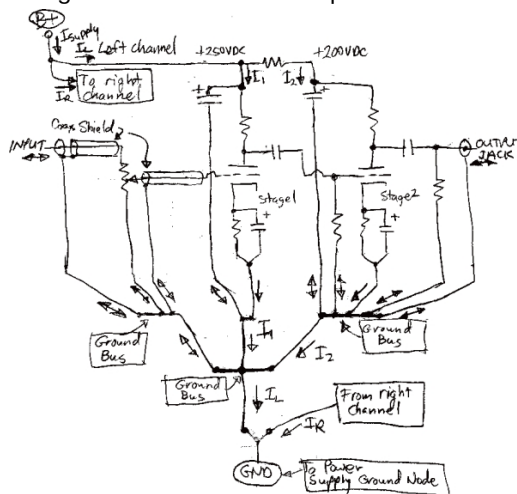 B+
Isupply
IL Left channel
+250VDC
+200VDC
I1
I2
To right
channel
IR
Coax Shield
INPUT
OUTPUT
JACK
Stage1
Stage2
+
+
+
+
Ground
Bus
I1
I2
Ground
Bus
Ground
Bus
IL
From right
channel
IR
GND
To Power
Supply Ground Node